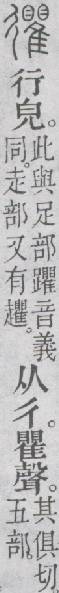 忂
行皃。
此與足部躣音義
同。走部又有𧾱。
从彳。瞿聲。
其俱切。
五部。